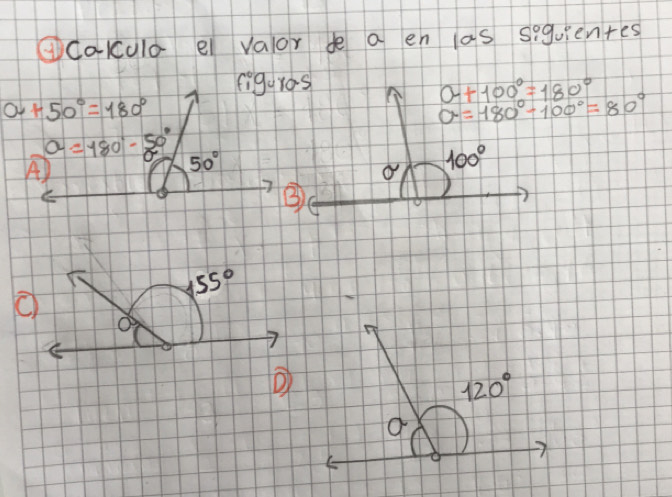 1 Calcula el valor de a en las siguientes
figuras
a + 50° = 180°
a = 180° - 50°
A)
a
50°
a + 100° = 180°
a = 180° - 100° = 80°
B)
a
100°
C)
a
155°
D)
a
120°